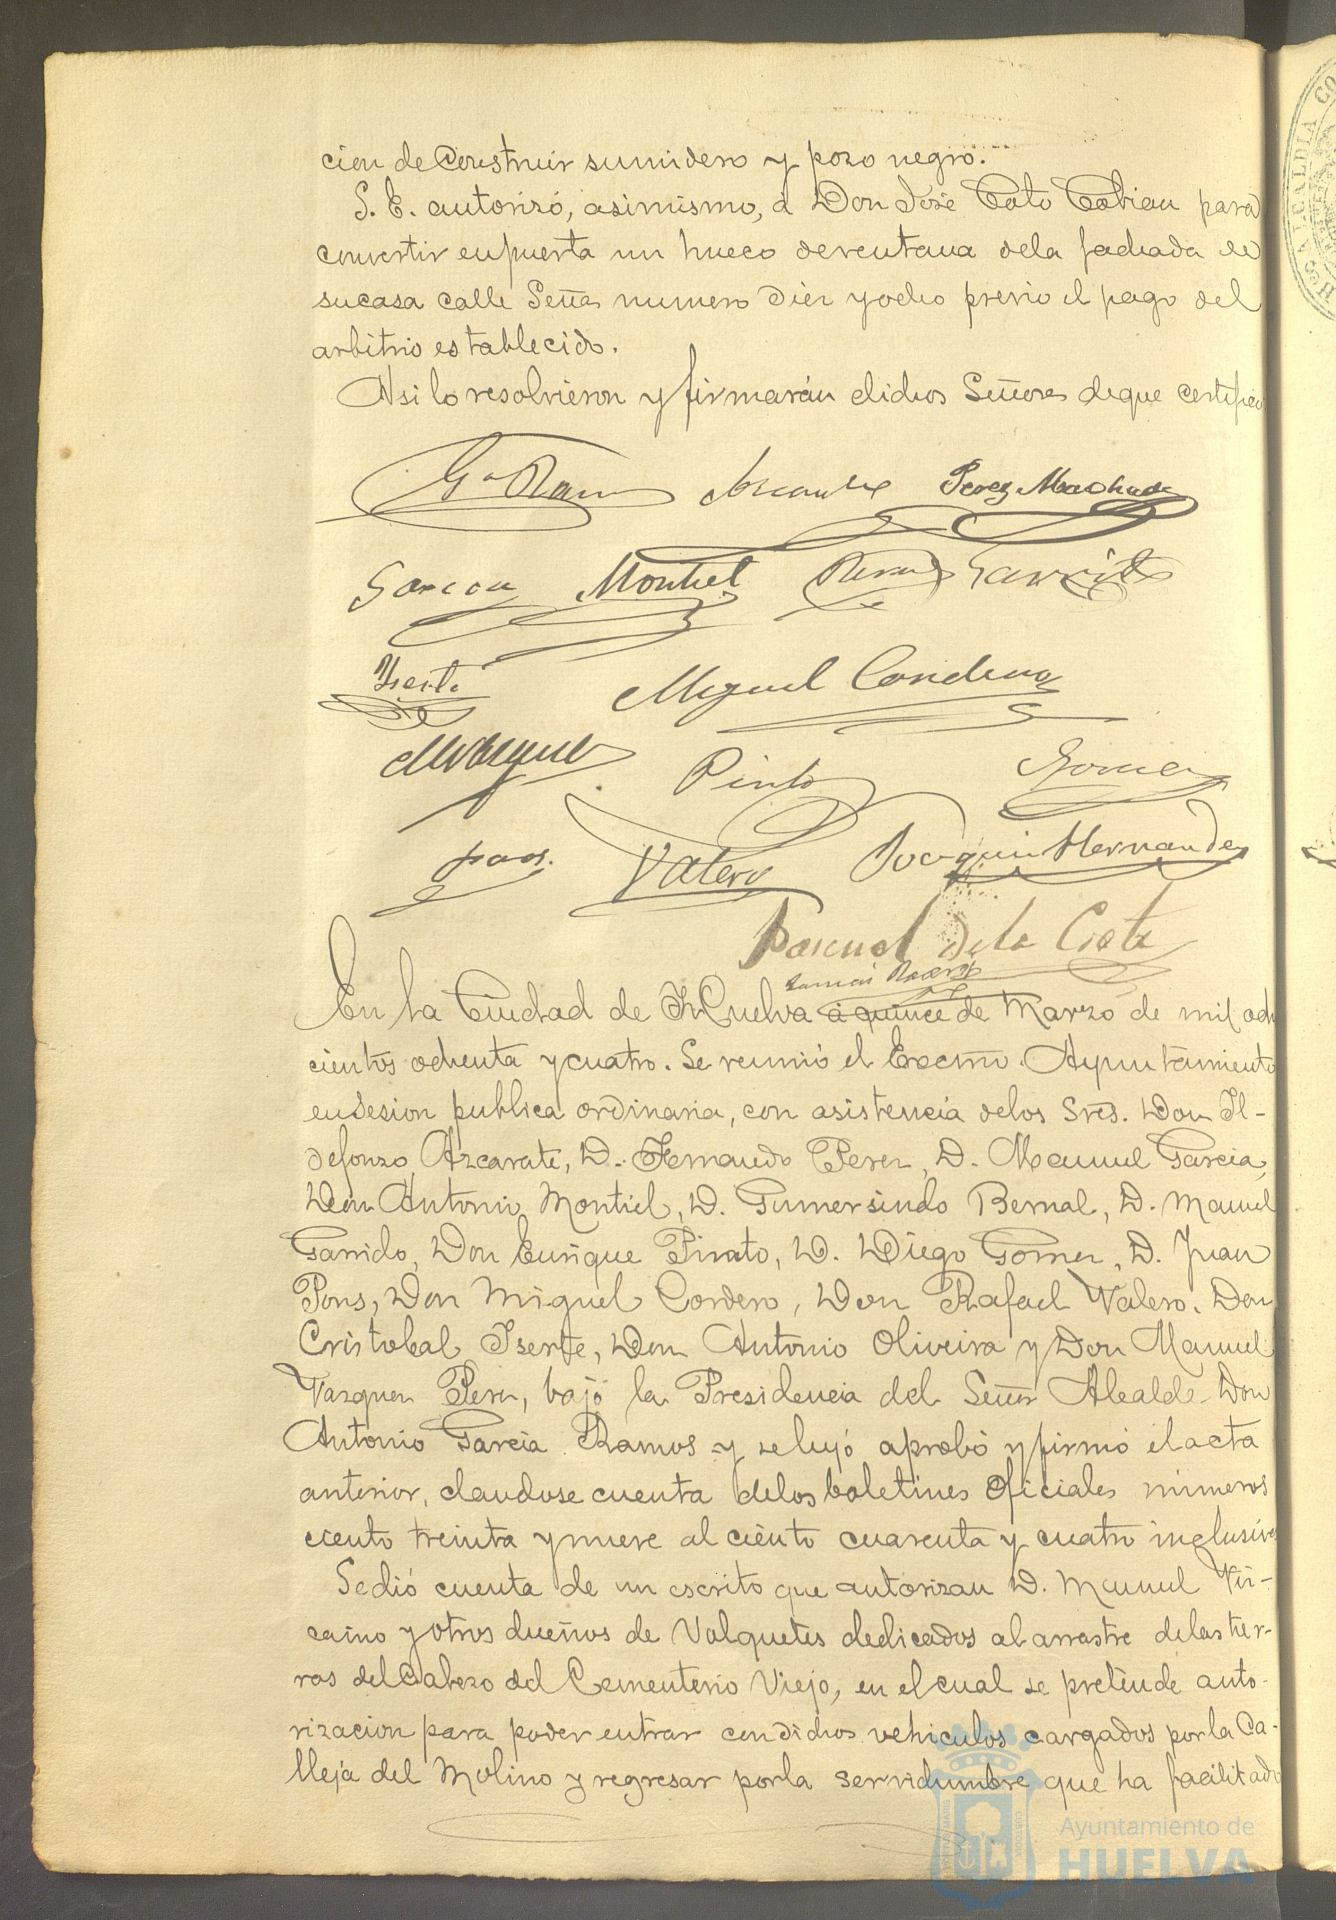 cion de Construir sumidero y pozo negro.
S. E. autorizó, asimismo, á Don José Coto Cobian para
convertir en puerta un hueco de ventana dela fachada de
su casa calle Señas numero Diez y ocho previo el pago del
arbitrio establecido.
Asi lo resolvieron y firmarán dichos Señores de que certifico
Gª Ramos Azcarate Perez Machado
Garcia Montiel Bernal Garrido
Iserte Miguel Cordero
MVazquez Pinto Gomez
Pons. Valero Joaquin Hernandez
Pascual de la Costa
En la Ciudad de Huelva á quince de Marzo de mil ocho
cientos ochenta y cuatro. Se reunió el Excmo. Ayuntamiento
en sesion publica ordinaria, con asistencia delos Sres. Don Il-
defonzo Azcarate, D. Fernando Perez, D. Manuel Garcia,
Don Antonio Montiel, D. Gumersindo Bernal, D. Manuel
Garrido, Don Enrique Pinto, D. Diego Gomez, D. Juan
Pons, Don Miguel Cordero, Don Rafael Valero. Don
Cristobal Iserte, Don Antonio Oliveira y Don Manuel
Vazquez Perez, bajo la Presidencia del Señor Alcalde Don
Antonio Garcia Ramos y se leyó aprobó y firmó el acta
anterior, dandose cuenta delos boletines Oficiales números
ciento treinta y nueve al ciento cuarenta y cuatro inclusive
Se dió cuenta de un escrito que autorizan D. Manuel Viz-
caino y otros dueños de Volquetes dedicados al arrastre delas tier-
ras del Cabezo del Cementerio Viejo, en el cual se pretende auto-
rizacion para poder entrar con dichos vehiculos cargados por la Ca-
lleja del Molino y regresar por la servidumbre que ha facilitado
Ayuntamiento de
HUELVA